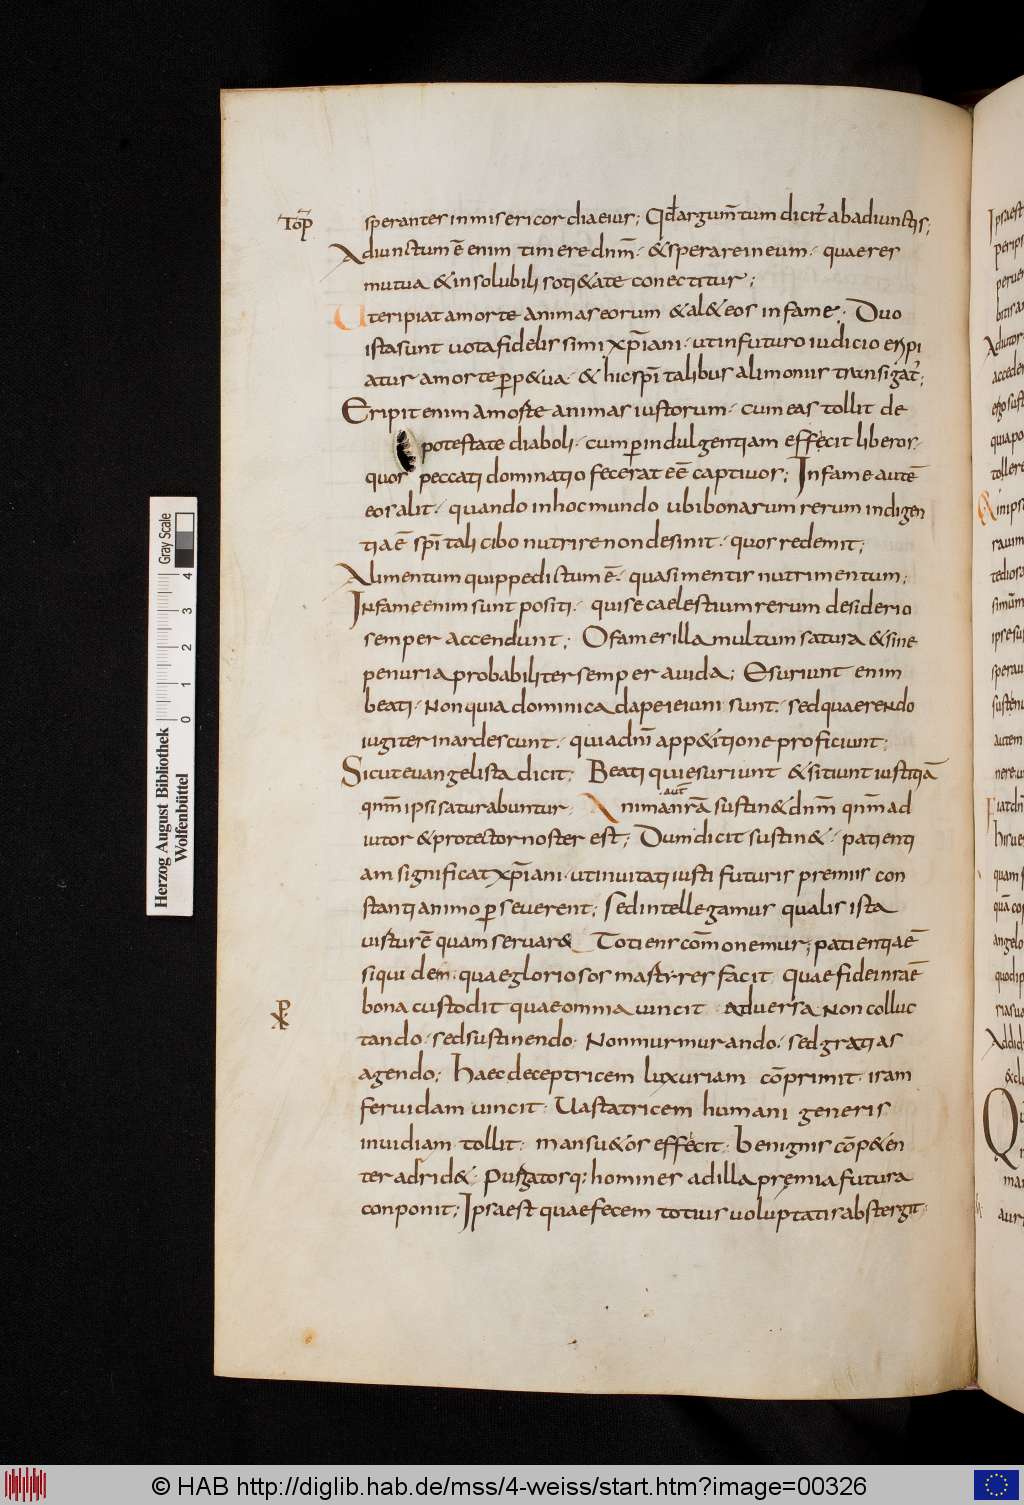 Top̄
sperantes in misericordia eius; Qđ argum̄tum dicit̃ ab adiunctis;
Adiunctum ē enim timere dnm̄· & sperare in eum· quae res
mutua & insolubili soti&ate conectitur;
Ut eripiat a morte animas eorum & al& eos in fame; Duo
ista sunt uota fidelis simi xp̄iani· ut in futuro iudicio eripi
atur a morte perp&ua· & hic spī talibus alimoniis transigat̃;
Eripit enim a morte animas iustorum· cum eas tollit de
potestate diaboli· cum per indulgentiam effecit liberos·
quos peccati dominatio fecerat eē captiuos; In fame autē
eos alit· quando in hoc mundo ubi bonarum rerum indigen
tia ē spī tali cibo nutrire non desinit· quos redemit;
Alimentum quippe dictum ē· quasi mentis nutrimentum;
In fame enim sunt positi· qui se caelestium rerum desiderio
semper accendunt; O fames illa multum satura & sine
penuria probabiliter semper auida; Esuriunt enim
beati· Non quia dominica dape ieiuni sunt· sed quaerendo
iugiter inardescunt· qui ad nm̄ app&itione proficiunt;
Sicut euangelista dicit; Beati qui esuriunt & sitiunt iustitiā
qnm̄ ipsi saturabuntur Anima nrā sustin& dnm̄ qnm̄ ad
aut̄
iutor & protector noster est; Dum dicit sustin&· patienti
am significat xp̄iani· ut inuitati iusti futuris premiis con
stanti animo perseuerent; Sed intellegamus qualis ista
uirtus ē quam seruar& Totiens com̄onemur; patientia ē
siquidem· quae gloriosos martyres facit Quae fidei nrāe
bona custodit quae omnia uincit aduersa non colluc
tando· sed sustinendo· Non murmurando· sed gratias
agendo; haec deceptricem luxuriam cōprimit· iram
feruidam uincit· Uastatricem humani generis
inuidiam tollit· mansu&os effecit· benignis cōp&en
ter adrid&· Purgatosq; homines ad illa premia futura
conponit; Ipsa est quae fecem totius uoluptatis abstergit·
Herzog August Bibliothek
Wolfenbüttel
0 1 2 3 4
Gray Scale
© HAB http://diglib.hab.de/mss/4-weiss/start.htm?image=00326